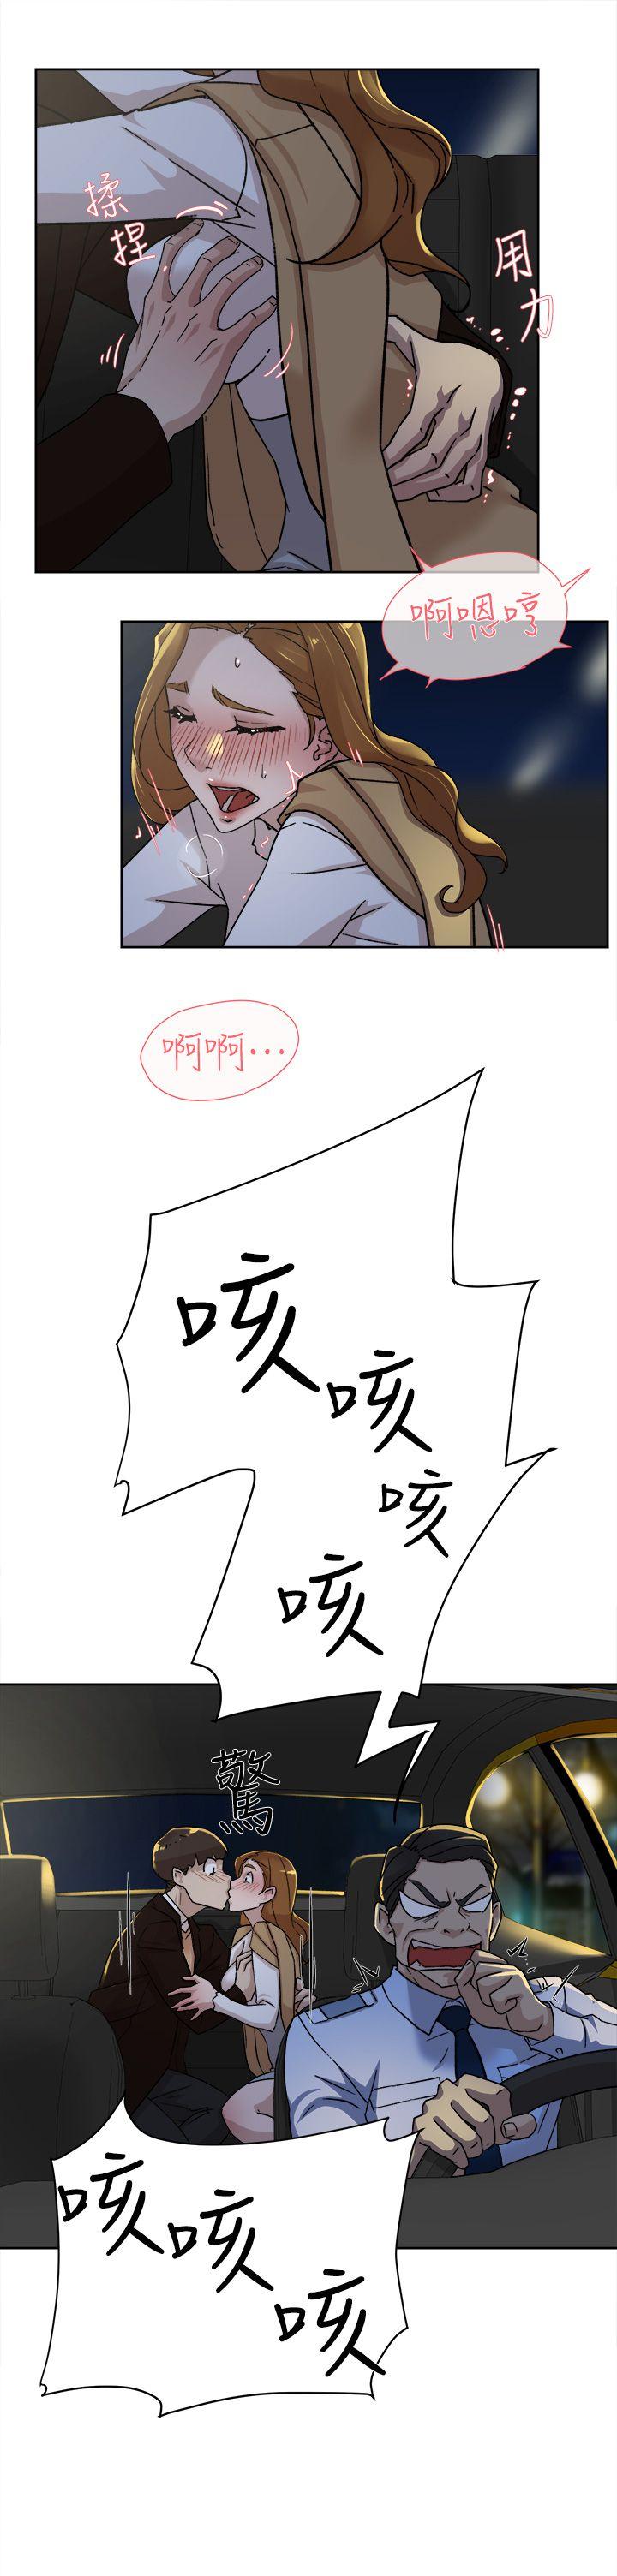 揉捏
用力
啊嗯哼
啊啊...
咳
咳
咳
咳
驚
咳咳咳